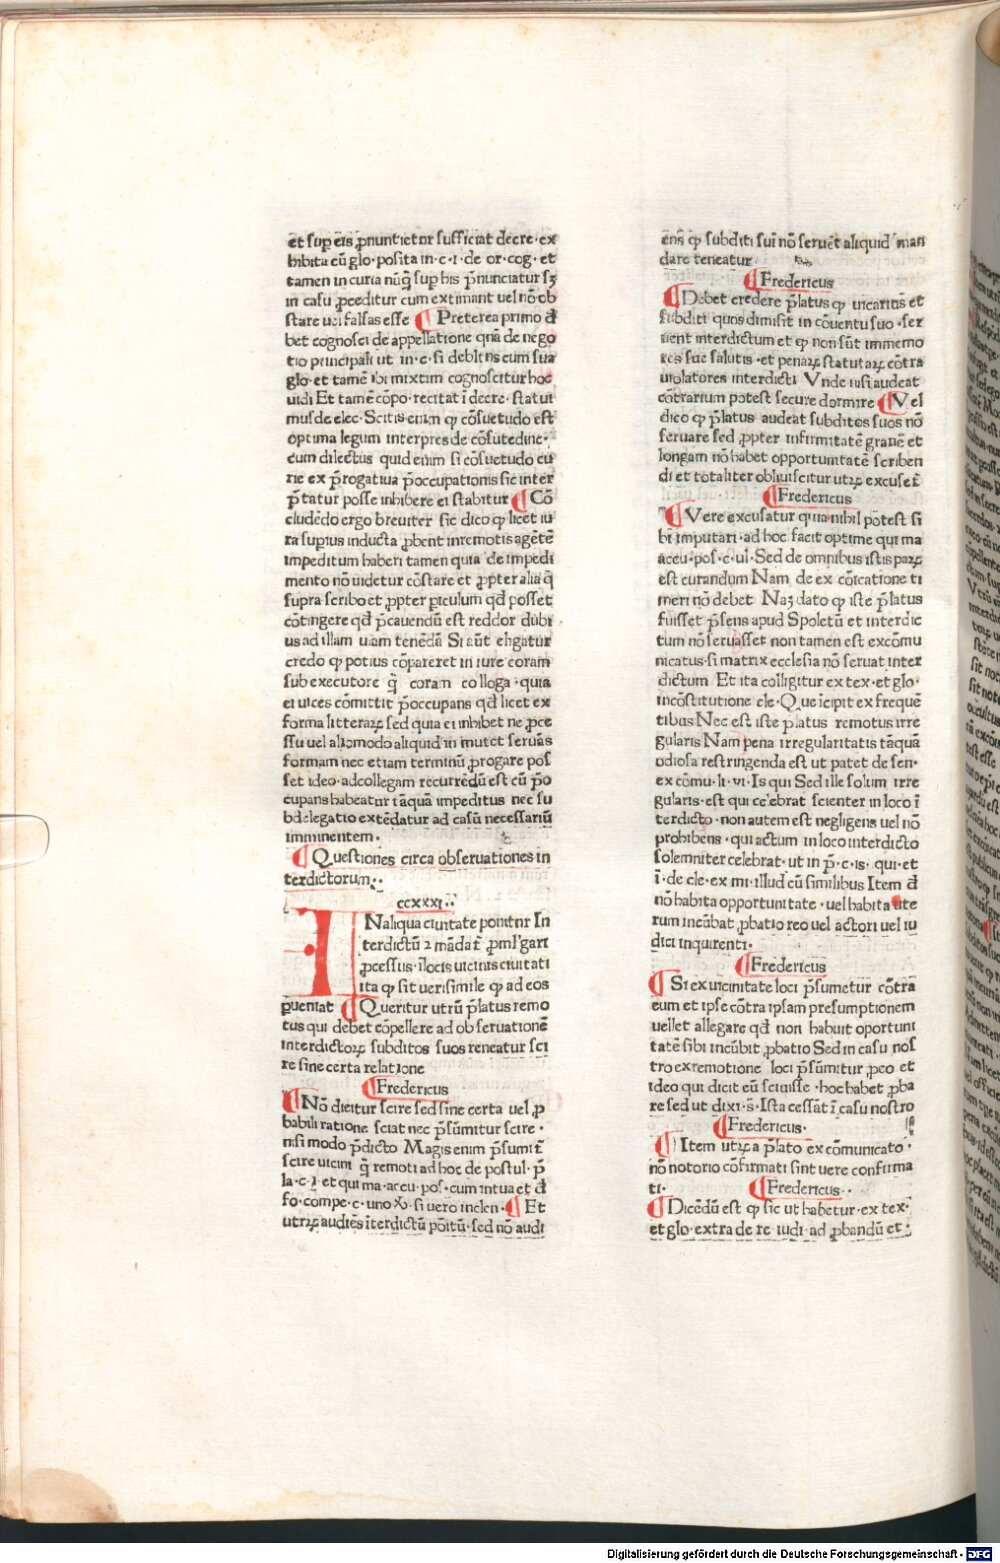 et sup eis ꝓnuntietur sufficiat decre· ex
hibita cū glo· posita in· c· i· de or· cog· et
tamen in curia nūq̄ sup his p̄nunciatur sꝫ
in casu ꝓceditur cum extimant uel nō ob
stare uel falsas esse ¶ Preterea primo d̄
bet cognosci de appellatione quā de nego
tio principali ut in· c· si deblitus eum sua
glo· et tamē ibi mixtim cognoscitur hoc
uidi Et tamē cōpo· recitat ī decre· statui
mus de elec· Scitis enim ꝙ cōsuetudo est
optima legum interpres de cōsutedine·
cum dilectus quid enim si cōsuetudo cu
rie ex p̄rogatiua p̄occupationis sic inter
p̄tatur posse inhibere ei stabitur ¶ Cō
cludēdo ergo breuiter sic dico ꝙ licet iu
ra supius inducta ꝓbent in remotis agētē
impeditum haberi tamen quia de impedi
mento nō uidetur cōstare et ꝓpter alia q̄
supra scribo et ꝓpter piculum qd posset
cōtingere qd p̄cauendū est reddor dubi
us ad illam uiam tenēdā Si aūt eligatur
credo ꝙ potius cōpareret in iure coram
sub executore q̄ coram colloga· quia
ei uices cōmittit p̄occupans qd licet ex
forma litteraꝝ sed quia ei inhibet ne ꝓce
ssu uel aliomodo aliquid in mutet seruās
formam nec etiam terminū ꝓrogare pos
set ideo· ad collegam recurrēdū est cū p̄o
cupans habeatur tāquā impeditus nec su
bdelegatio extēdatur ad casū necessariū
imminentem·
¶ Questiones circa obseruationes in
terdictorum··
ccxxxi··
IN aliqua ciuitate ponitur In
terdictū ⁊ mādat̄ ꝓml'gari
ꝓcessus· ī locis uicinis ciuitati
ita ꝙ sit uerisimile ꝙ ad eos
ꝑueniat ¶ Queritur utrū p̄latus remo
tus qui debet cōpellere ad obseruationē
interdictoꝝ subditos suos reneatur sci
re sine certa relatione
¶ Fredericus
¶ Nō dicitur scire sed sine certa uel ꝓ
babili ratione sciat nec p̄sūmitur scire·
nisi modo p̄dicto Magis enim p̄sumit̄
scire uicini q̄ remoti ad hoc de postul· p̄
la· c· i· et qui ma· accu· pos· cum in tua et d̄
fo· compe· c· uno· si uero in clen· ¶ Et
utrꝝ audiēs īterdictū pōitū· sed nō audi
ens ꝙ subditi sui nō seruēt aliquid man
dare teneatur
¶ Fredericus
¶ Debet credere p̄latus ꝙ uicarius et
subditi quos dimisit in cōuentu suo· ser
uient interdictum et ꝙ non sūt immemo
res sue salutis· et penaꝝ statutaꝝ cōtra
uiolatores interdicti Vnde nisi audeat
cōtrarium potest secure dormire ¶ Vel
dico ꝙ p̄latus audeat subditos suos nō
seruare sed ꝓpter infirmitatē grauē et
longam nō habet opportunitatē scriben
di et totaliter obliuiscitur utꝝ excuset̄
¶ Fredericus
¶ Vere excusatur quia nihil potest si
bi imputari· ad hoc facit optime qui ma
accu· pos· c· ul· Sed de omnibus istis paꝝ
est curandum Nam de ex cōicatione ti
meri nō debet Naꝫ dato ꝙ iste p̄latus
fuisset p̄sens apud Spoletū et interdic
tum nō seruasset non tamen est excōmu
nicatus· si matrix ecclesia nō seruat inter
dictum Et ita colligitur ex tex· et glo·
in cōstitutione cle· Que īcipit ex frequē
tibus Nec est iste platus remotus irre
gularis Nam pena irregularitatis tāquā
odiosa restringenda est ut patet de sen·
ex cōmu· li· vi· Is qui Sed ille solum irre
gularis· est qui ce'ebrat scienter in loco ī
terdicto· non autem est negligens uel nō
prohibens· qui actum in loco interdicto
solemniter celebrat· ut in p̄· c· is· qui· et
ī· de cle· ex mi· illud cū similibus Item d̄
nō habita opportunitate· uel habita ute
rum incūbat ꝓbatio reo uel actori uel iu
dici inquirenti·
¶ Fredericus
¶ Si ex uicinitate loci p̄sumetur cōtra
eum et ipse cōtra ipsam presumptionem
uellet allegare qd non habuit oportuni
tatē sibi incūbit ꝓbatio Sed in casu nos
tro ex remotione loci p̄sūmitur ꝓ eo et
ideo qui dicit eū sciuisse· hoc habet ꝓba
re sed ut dixi· s· Ista cessāt ī casu nostro
¶ Fredericus·
¶ Item utꝝ a p̄lato ex cōmunicato·
nō notorio cōfirmati sint uere confirma
ti· ¶ Fredericus··
¶ Dicēdū est ꝙ sic ut habetur· ex tex·
et glo· extra de re iudi· ad ꝓbandū et·
Digitalisierung gefördert durch die Deutsche Forschungsgemeinschaft · DFG